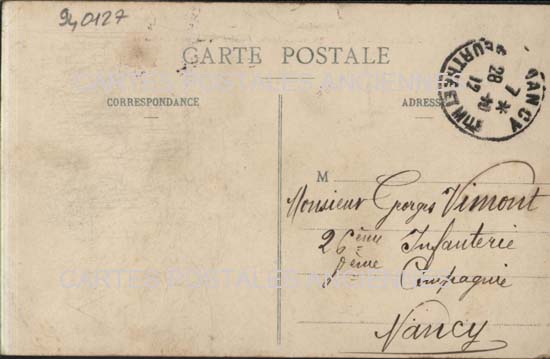 940127
CARTE POSTALE
CARTES POSTALES ANCIENNES
CORRESPONDANCE
ADRESSE
NANCY
MEURTHE-ET-MLLE
7 *
28 -
12
M
Monsieur Georges Vimont
26ème Infanterie
8ème Compagnie
CARTES POSTALES ANCIENNES
Nancy